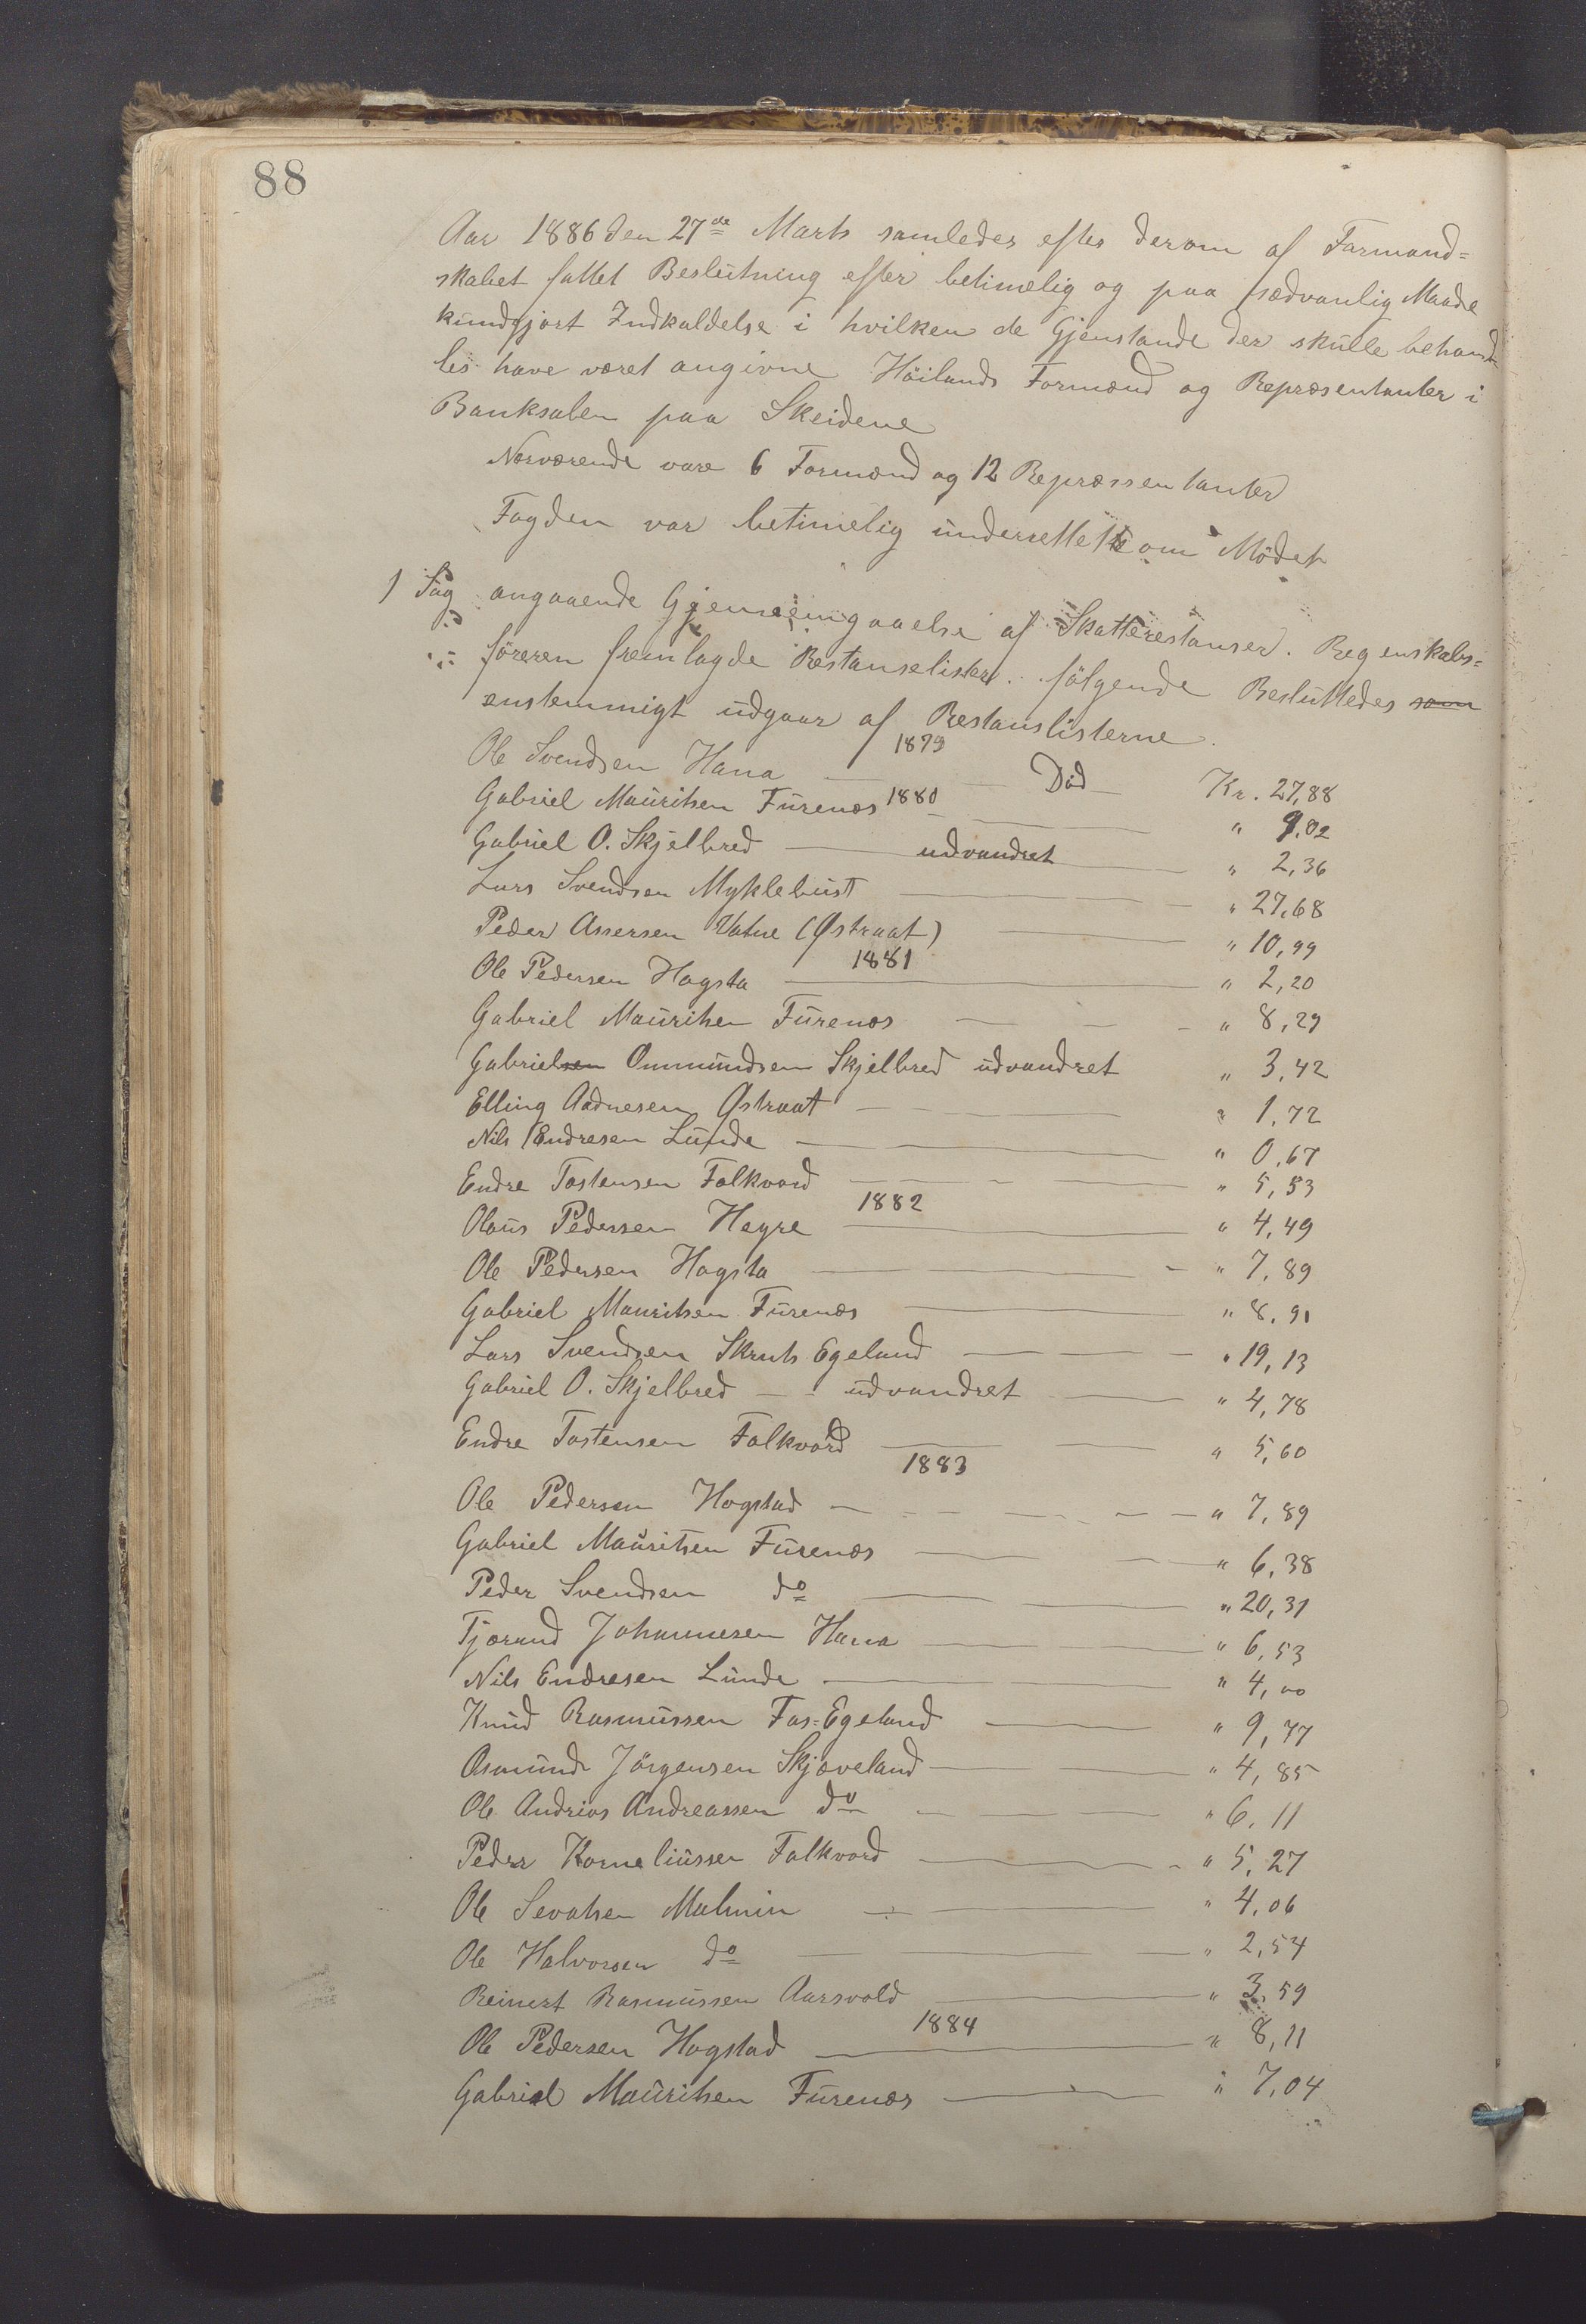 88
Aar 1886 den 27de Marts samledes efter derom af Formand=
skabet fattet Beslutning efter betimelig og paa sædvanlig Maade
kundgjort Indkaldelse i hvilken de Gjenstande der skulle behand=
les have været angivne Höilands Formænd og Repræsentanter i
Banksalen paa Skeidene
Nærværende vare 6 Formænd og 12 Repræssentanter
Fogden var betimelig underrettet om Mödet
1 Sag angaaende Gjennemgaaelse af Skatterestanser. Regenskabs=
föreren fremlagde Restanselister. fölgende Besluttedes som
enstemmigt udgaar af Restanslisterne.
1879
Ole Svendsen Hana — Död — Kr. 27,88
Gabriel Mauritsen Furenes 1880 — " 9,02
Gabriel O. Skjelbred — udvandret — " 2,36
Lars Svendsen Myklebust — " 27,68
Peder Assersen Vatne (Østraat) — " 10,99
1881
Ole Pedersen Hogsta — " 2,20
Gabriel Mauritsen Furenes — " 8,29
Gabrielsen Ommundsen Skjelbred udvandret " 3,42
Elling Aadnesen Østraat — " 1,72
Nils Endresen Lunde — " 0,67
Endre Tostensen Folkvord — " 5,53
1882
Olaus Pedersen Hegre — " 4,49
Ole Pedersen Hogsta — " 7,89
Gabriel Mauritsen Furenes — " 8,91
Lars Svendsen Skruds Egeland — " 19,13
Gabriel O. Skjelbred — udvandret — " 4,78
Endre Tostensen Folkvord — " 5,60
1883
Ole Pedersen Hogstad — " 7,89
Gabriel Mauritsen Furenes — " 6,38
Peder Svendsen do — " 20,31
Tjørand Johannesen Hana — " 6,53
Nils Endresen Lunde — " 4,00
Knud Rasmussen Fos=Egeland — " 9,77
Osmund Jörgensen Skjæveland — " 4,85
Ole Andrias Andreassen do — " 6,11
Peder Korneliussen Folkvord — " 5,27
Ole Sevatsen Malmin — " 4,06
Ole Halvorsen do — " 2,54
Reinert Rasmussen Aarsvold — " 3,59
1884
Ole Pedersen Hogstad — " 8,11
Gabriel Mauritsen Furenes — " 7,04